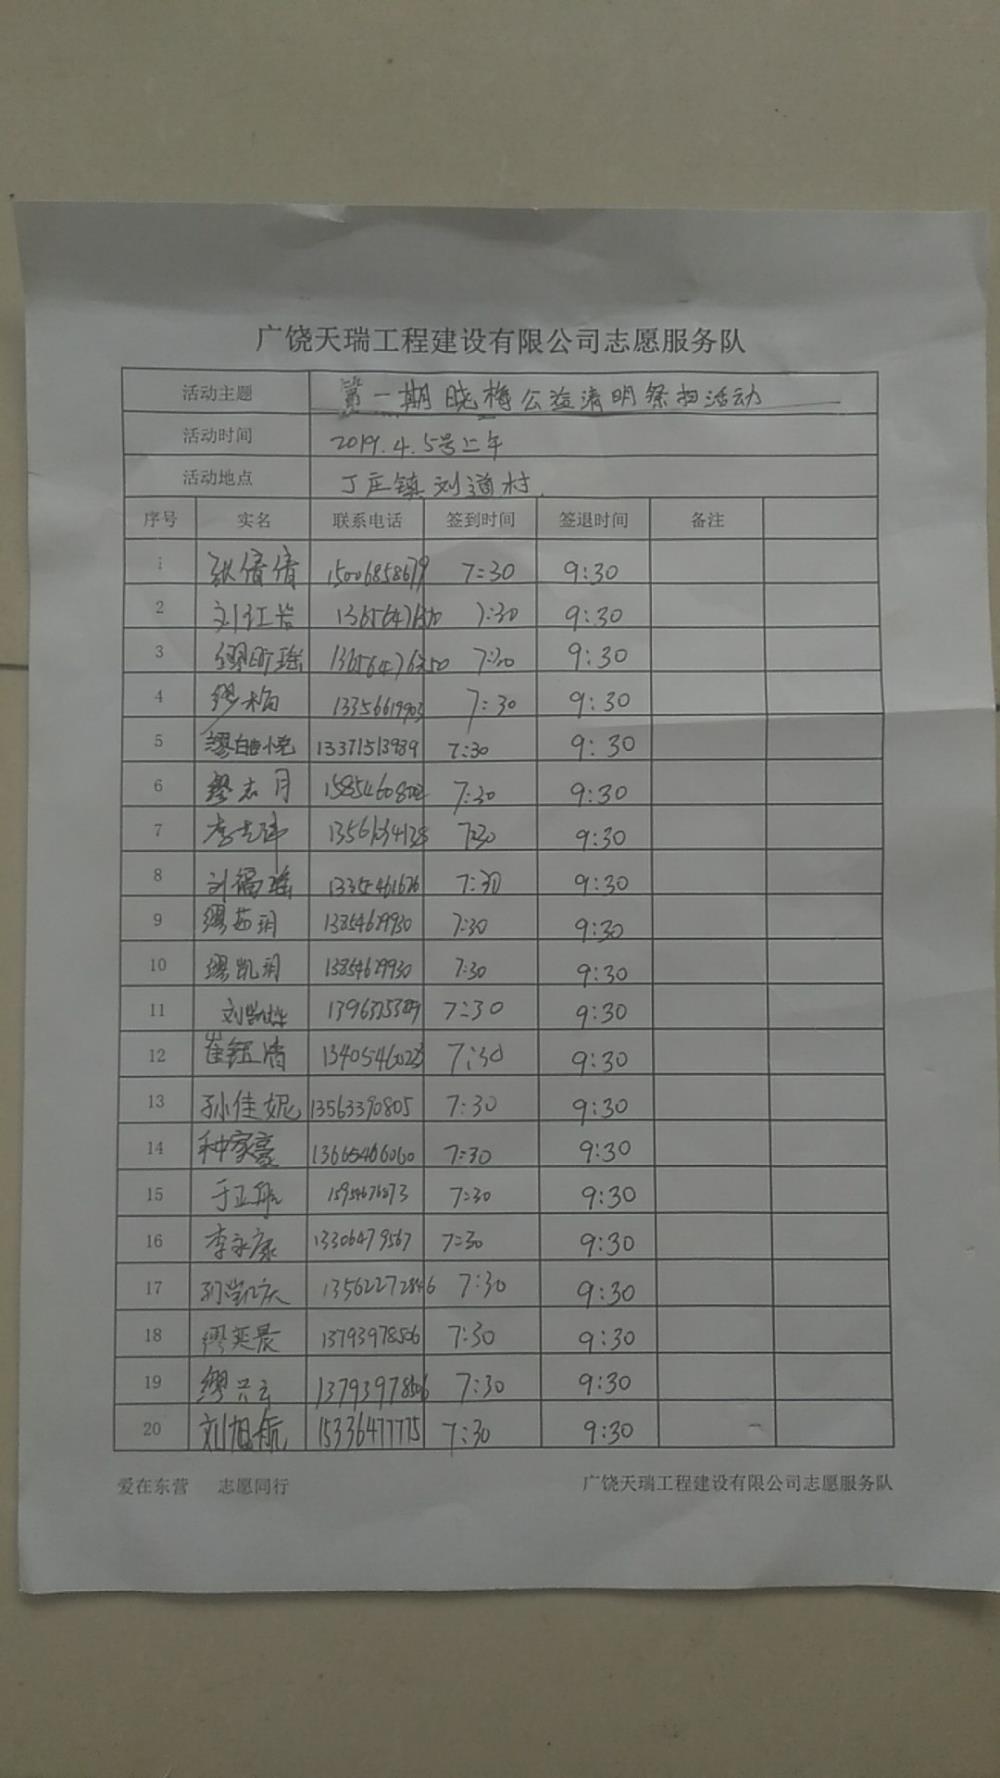 广饶天瑞工程建设有限公司志愿服务队
活动主题 第一期晓梅公益清明祭扫活动
活动时间 2019.4.5号上午
活动地点 丁庄镇刘道村
序号 实名 联系电话 签到时间 签退时间 备注
1 张倩倩 15006858679 7:30 9:30
2 刘红岩 7:30 9:30
3 缪昕瑶 7:30 9:30
4 缪梅 13356619903 7:30 9:30
5 13371513989 7:30 9:30
6 缪志月 7:30 9:30
7 李志玮 7:30 9:30
8 刘福瑶 7:30 9:30
9 缪茹玥 13854629930 7:30 9:30
10 缪凯玥 13854629930 7:30 9:30
11 7:30 9:30
12 崔钰清 13405460223 7:30 9:30
13 孙佳妮 13563390805 7:30 9:30
14 种家豪 13665466060 7:30 9:30
15 于正航 7:30 9:30
16 李永康 13306479567 7:30 9:30
17 孙凯庆 13562272846 7:30 9:30
18 缪英晨 13793978506 7:30 9:30
19 缪兴云 13793978506 7:30 9:30
20 刘旭航 15336477775 7:30 9:30
爱在东营 志愿同行 广饶天瑞工程建设有限公司志愿服务队